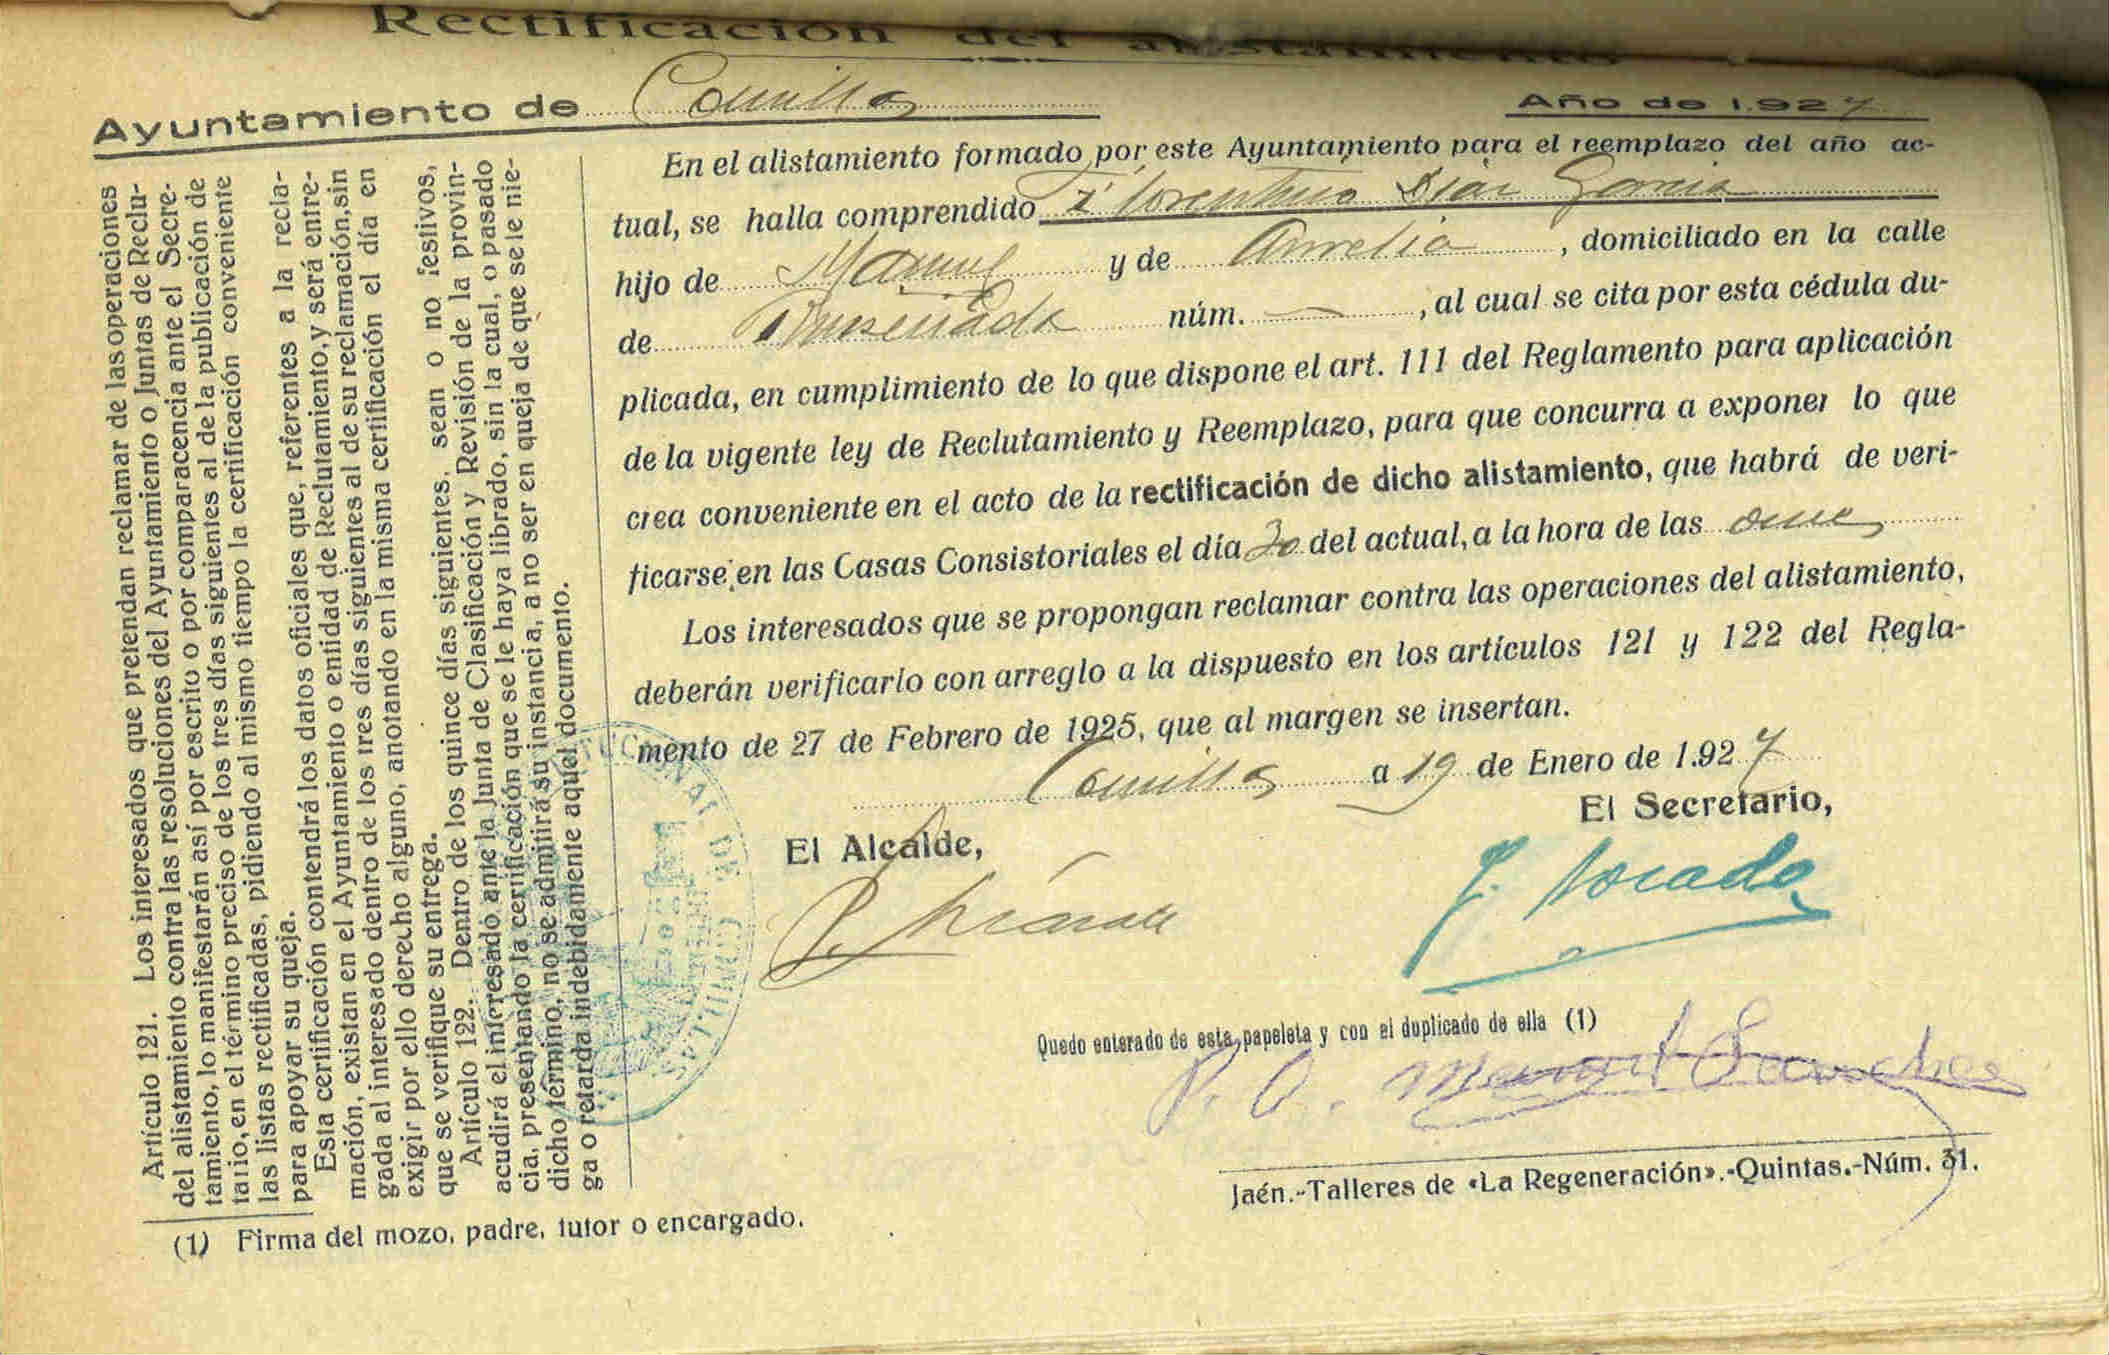 Rectificación del alistamiento
Ayuntamiento de Comillas
Año de 1.927
En el alistamiento formado por este Ayuntamiento para el reemplazo del año ac-
tual, se halla comprendido Florentino Diaz Garcia
hijo de Manuel y de Aurelia, domiciliado en la calle
de núm. —, al cual se cita por esta cédula du-
plicada, en cumplimiento de lo que dispone el art. 111 del Reglamento para aplicación
de la vigente ley de Reclutamiento y Reemplazo, para que concurra a exponer lo que
crea conveniente en el acto de la rectificación de dicho alistamiento, que habrá de veri-
ficarse en las Casas Consistoriales el día 30 del actual, a la hora de las once
Los interesados que se propongan reclamar contra las operaciones del alistamiento,
deberán verificarlo con arreglo a la dispuesto en los artículos 121 y 122 del Regla-
mento de 27 de Febrero de 1925, que al margen se insertan.
Comillas a 19 de Enero de 1.927
El Alcalde,
El Secretario,
Quedo enterado de esta papeleta y con el duplicado de ella (1)
P. O. Manuel Sanchez
Jaén.-Talleres de «La Regeneración».-Quintas.-Núm. 31.
Artículo 121. Los interesados que pretendan reclamar de las operaciones
del alistamiento contra las resoluciones del Ayuntamiento o Juntas de Reclu-
tamiento, lo manifestarán así por escrito o por comparacencia ante el Secre-
tario, en el término preciso de los tres días siguientes al de la publicación de
las listas rectificadas, pidiendo al mismo tiempo la certificación conveniente
para apoyar su queja.
Esta certificación contendrá los datos oficiales que, referentes a la recla-
mación, existan en el Ayuntamiento o entidad de Reclutamiento, y será entre-
gada al interesado dentro de los tres días siguientes al de su reclamación, sin
exigir por ello derecho alguno, anotando en la misma certificación el día en
que se verifique su entrega.
Artículo 122. Dentro de los quince días siguientes, sean o no festivos,
acudirá el interesado ante la Junta de Clasificación y Revisión de la provin-
cia, presentando la certificación que se le haya librado, sin la cual, o pasado
dicho término, no se admitirá su instancia, a no ser en queja de que se le nie-
ga o retarda indebidamente aquel documento.
(1) Firma del mozo, padre, tutor o encargado.
CONSTITUCIONAL DE COMILLAS